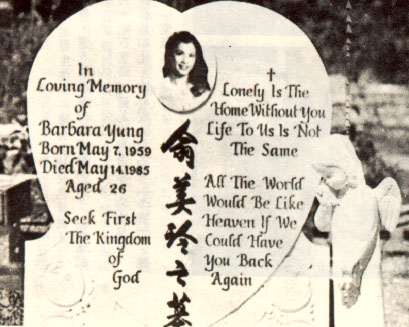 In
Loving Memory
of
Barbara Yung
Born May 7, 1959
Died May 14, 1985
Aged 26
Seek First
The Kingdom
of
God
翁美玲之墓
Lonely Is The
Home Without You
Life To Us Is Not
The Same
All The World
Would Be Like
Heaven If We
Could Have
You Back
Again